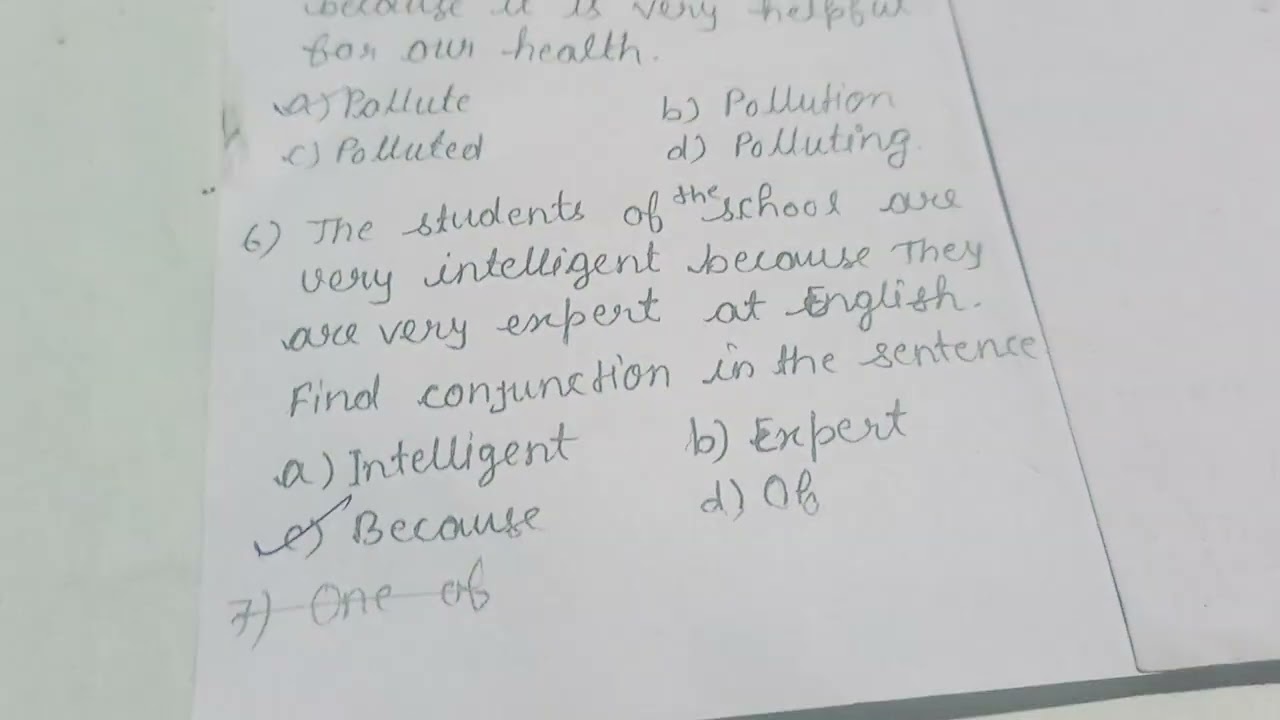 because it is very helpful
for our health.
a) Pollute b) Pollution
c) Polluted d) Polluting.
6) The students of the school are
very intelligent because They
are very expert at English.
Find conjunction in the sentence
a) Intelligent b) Expert
c) Because d) Of
7) One of